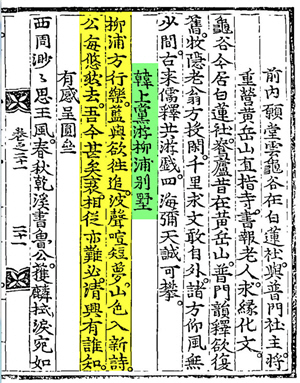 前內願堂雲龜谷在白蓮社與普門社主將
重營黃岳山直指寺書報老人求緣化文
龜谷今居白蓮社昔在黃岳山普門韻釋欲復
舊牧隱老翁方投閑千里求文敢自外諸方仰風無
少間古來儒釋共游戲四海彌天誠可攀
韓上黨游柳浦別墅
柳浦方行樂藍輿欲往追波聲喧短夢山色入新詩
公每悠然去吾今甚矣衰相從亦難必淸興有誰知
有感呈圓齋
西周渺〻思王風春秋乾溪書會公獲麟拭淚宛如
卷之二十一